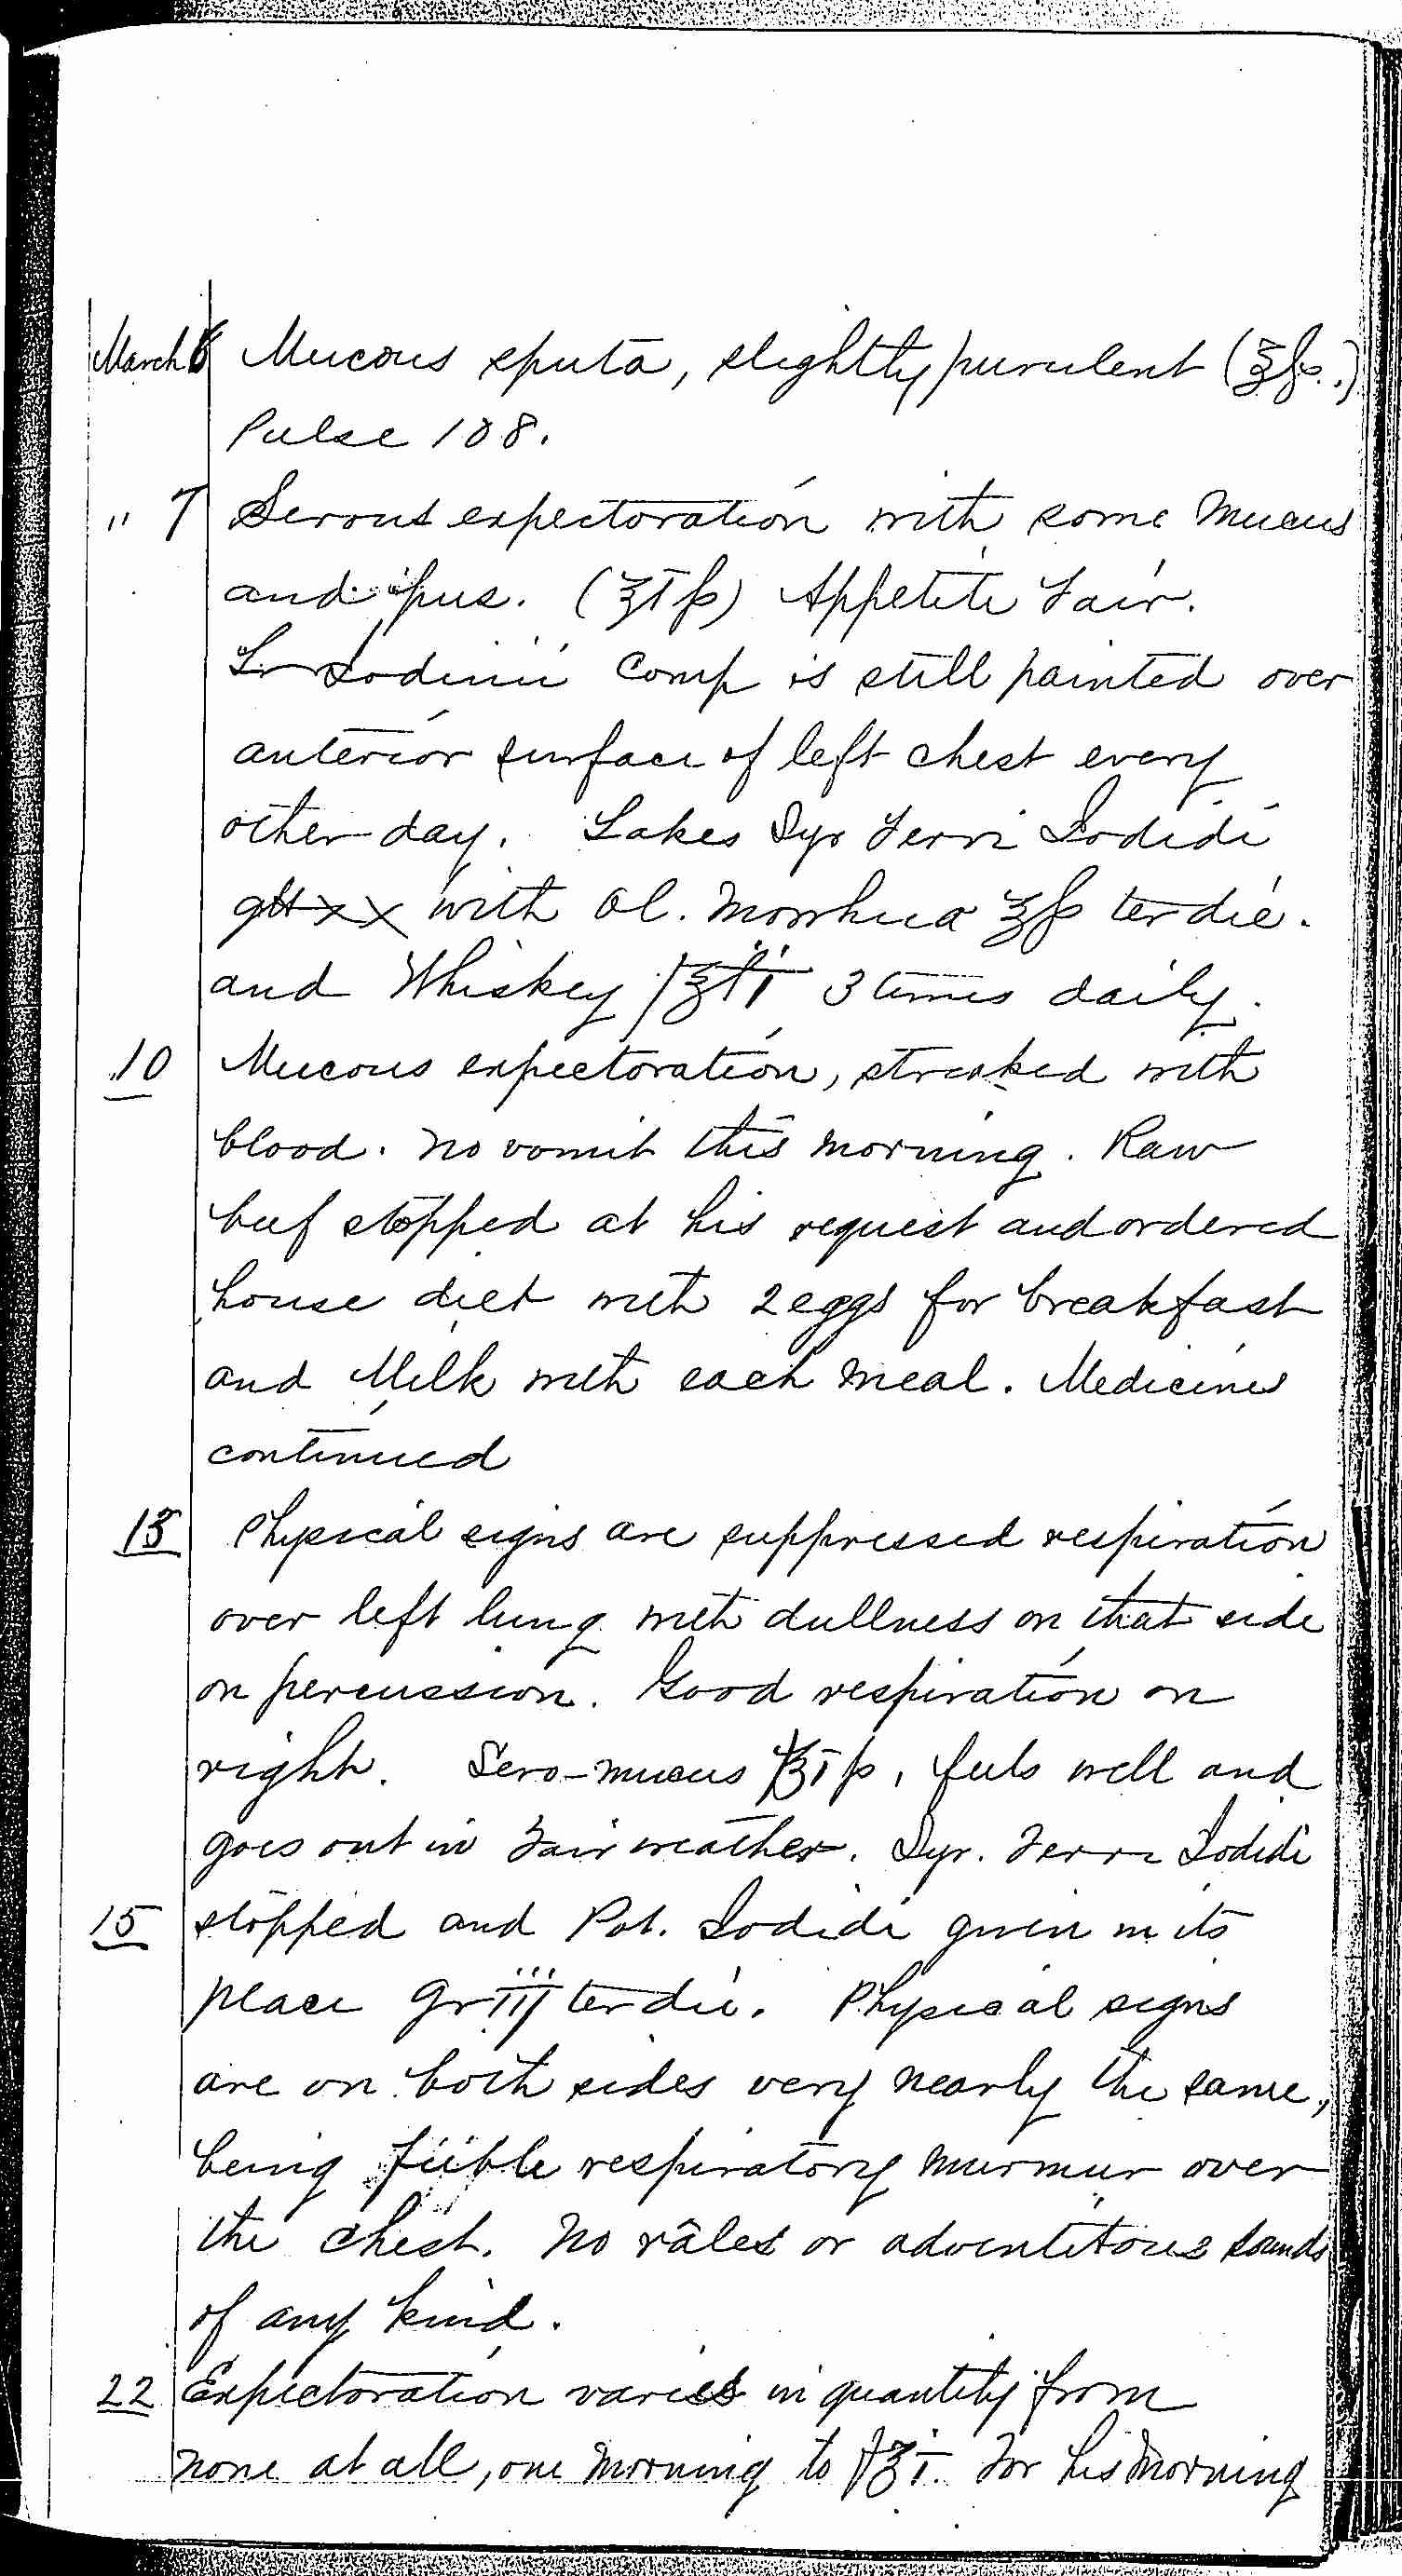 March 6 Mucous sputa, slightly purulent (℥ſs.)
Pulse 108.
" 7 Serous expectoration with some mucus
and pus. (℥i ſs) Appetite Fair.
Iodinii Comp is still painted over
anterior surface of left chest every
other day. Takes Syr Ferri Iodidi
gtt xx with Ol. Morrhua ℥ſs ter die.
and Whiskey f℥ii 3 times daily.
10 Mucous expectoration, streaked with
blood. No vomit this morning. Raw
beef stopped at his request and ordered
house diet with 2 eggs for breakfast
and Milk with each meal. Medicines
continued
13 Physical signs are suppressed respiration
over left lung with dullness on that side
on percussion. Good respiration on
right. Sero-mucus f℥i ſs, feels well and
goes out in Fair weather. Syr. Ferri Iodidi
15 stopped and Pot. Iodidi given in its
place Gr iij ter die. Physical signs
are on both sides very nearly the same,
being feeble respiratory murmur over
the chest. No râles or adventitous sounds
of any kind.
22 Expectoration varies in quantity from
none at all, one morning to f℥i. For his morning